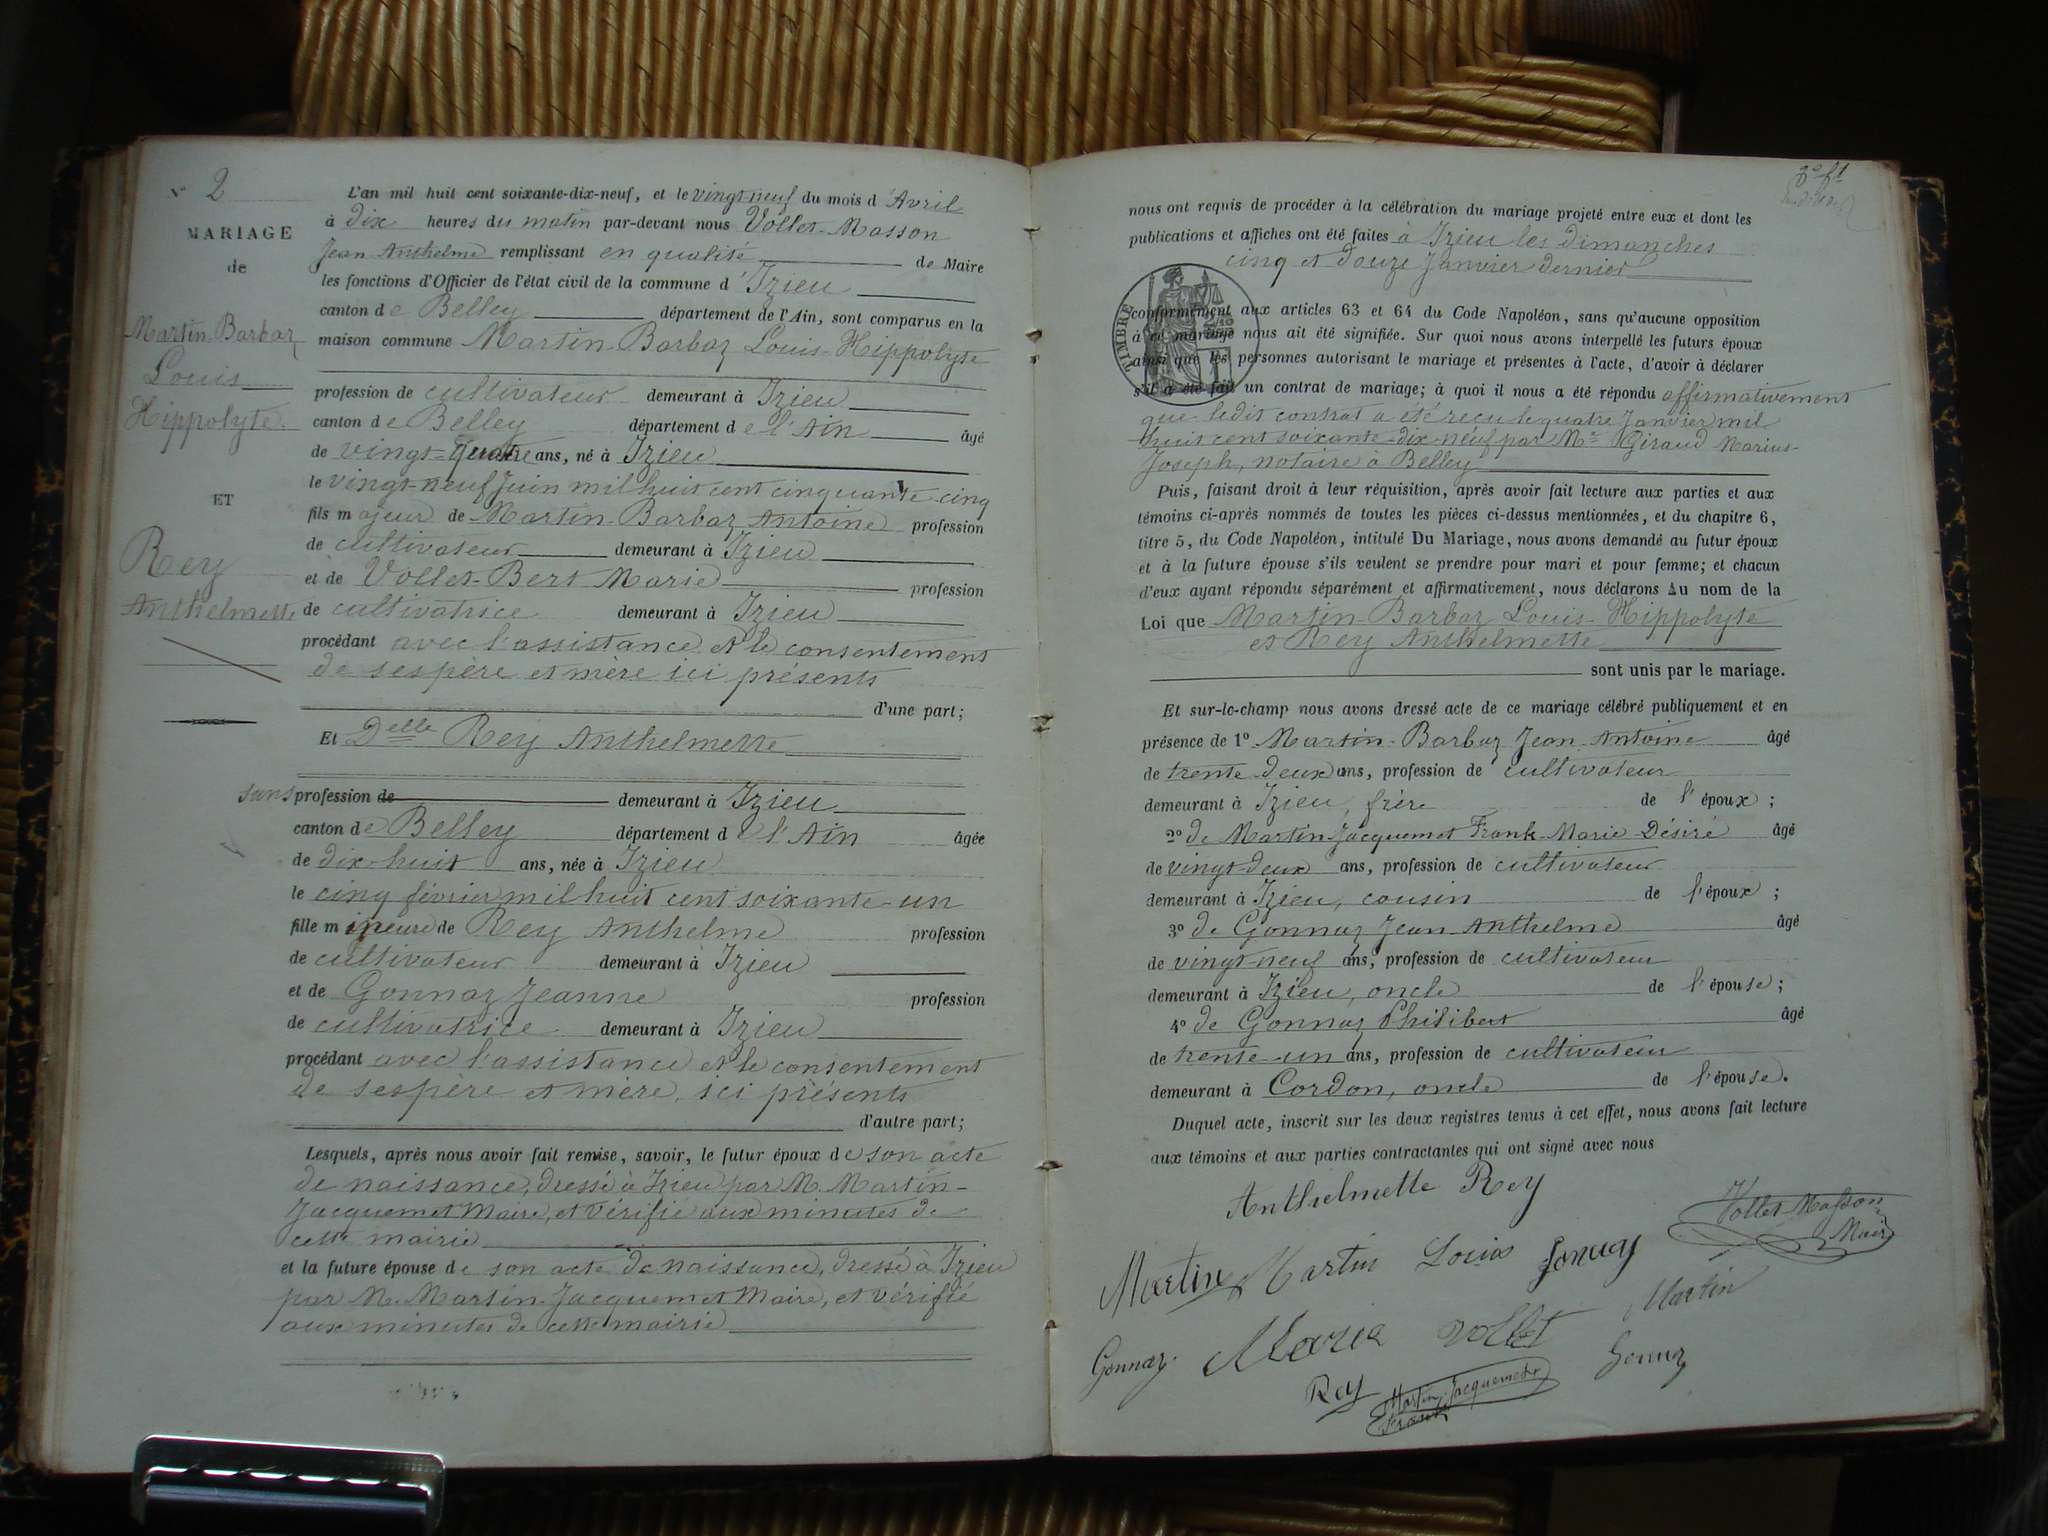 N° 2
MARIAGE
de
Martin-Barbaz
Louis
Hippolyte.
ET
Rey
Anthelmette
L'an mil huit cent soixante-dix-neuf, et le vingt-neuf du mois d'Avril
à dix heures du matin par-devant nous Vollet-Masson
Jean Anthelme remplissant en qualité de Maire
les fonctions d'Officier de l'état civil de la commune d'Izieu
canton de Belley département de l'Ain, sont comparus en la
maison commune Martin-Barbaz Louis-Hippolyte
profession de cultivateur demeurant à Izieu
canton de Belley département de l'Ain âgé
de vingt-quatre ans, né à Izieu
le vingt-neuf Juin mil huit cent cinquante-cinq
fils majeur de Martin-Barbaz Antoine profession
de cultivateur demeurant à Izieu
et de Vollet-Bert Marie profession
de cultivatrice demeurant à Izieu
procédant avec l'assistance et le consentement
de ses père et mère ici présents
d'une part;
Et Delle Rey Anthelmette
sans profession de demeurant à Izieu
canton de Belley département de l'Ain âgée
de dix-huit ans, née à Izieu
le cinq février mil huit cent soixante-un
fille mineure de Rey Anthelme profession
de cultivateur demeurant à Izieu
et de Gonnaz Jeanne profession
de cultivatrice demeurant à Izieu
procédant avec l'assistance et le consentement
de ses père et mère, ici présents
d'autre part;
Lesquels, après nous avoir fait remise, savoir, le futur époux de son acte
de naissance, dressé à Izieu par M. Martin-
Jacquemet Maire, et vérifié aux minutes de
cette mairie
et la future épouse de son acte de naissance, dressé à Izieu
par M. Martin-Jacquemet Maire, et vérifié
aux minutes de cette mairie
nous ont requis de procéder à la célébration du mariage projeté entre eux et dont les
publications et affiches ont été faites à Izieu les dimanches
cinq et douze Janvier dernier
TIMBRE
conformément aux articles 63 et 64 du Code Napoléon, sans qu'aucune opposition
à ce mariage nous ait été signifiée. Sur quoi nous avons interpellé les futurs époux
ainsi que les personnes autorisant le mariage et présentes à l'acte, d'avoir à déclarer
s'il a été fait un contrat de mariage; à quoi il nous a été répondu affirmativement
que ledit contrat a été reçu le quatre Janvier mil
huit cent soixante-dix-neuf par Me Giraud Marius-
Joseph, notaire à Belley
Puis, faisant droit à leur réquisition, après avoir fait lecture aux parties et aux
témoins ci-après nommés de toutes les pièces ci-dessus mentionnées, et du chapitre 6,
titre 5, du Code Napoléon, intitulé Du Mariage, nous avons demandé au futur époux
et à la future épouse s'ils veulent se prendre pour mari et pour femme; et chacun
d'eux ayant répondu séparément et affirmativement, nous déclarons Au nom de la
Loi que Martin-Barbaz Louis-Hippolyte
et Rey Anthelmette
sont unis par le mariage.
Et sur-le-champ nous avons dressé acte de ce mariage célébré publiquement et en
présence de 1° Martin-Barbaz Jean Antoine âgé
de trente-deux ans, profession de cultivateur
demeurant à Izieu, frère de l'époux;
2° de Martin-Jacquemet Frank-Marie-Désiré âgé
de vingt-deux ans, profession de cultivateur
demeurant à Izieu, cousin de l'époux;
3° de Gonnaz Jean-Anthelme âgé
de vingt-neuf ans, profession de cultivateur
demeurant à Izieu, oncle de l'épouse;
4° de Gonnaz Philibert âgé
de trente-un ans, profession de cultivateur
demeurant à Cordon, oncle de l'épouse.
Duquel acte, inscrit sur les deux registres tenus à cet effet, nous avons fait lecture
aux témoins et aux parties contractantes qui ont signé avec nous
Anthelmette Rey
Vollet-Masson
Maire
Martin Martin Louis
Martin
Gonnaz Maria Vollet
Rey Martin-Jacquemet
Frank